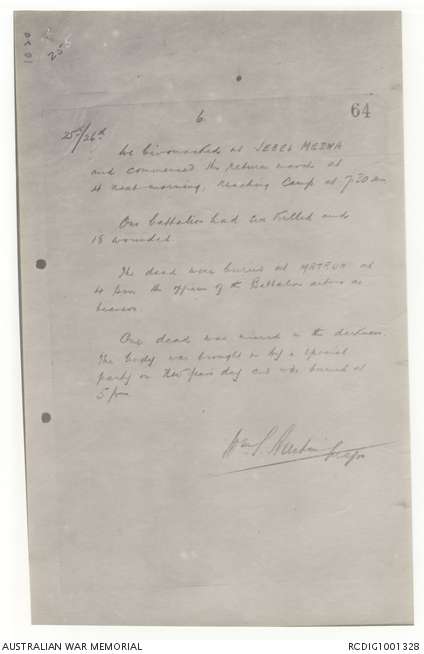 6
64
25th/26th
We bivouacked at JEBEL MEDWA
and commenced the return march at
4 next morning, reaching Camp at 7.30 am
Our battalion had six killed and
18 wounded
The dead were buried at MATRUH at
4 pm the officers of the Battalion acting as
bearers
One dead was missed in the darkness.
The body was brought in by a special
party on New Years day and was buried at
5 pm
AUSTRALIAN WAR MEMORIAL
RCDIG1001328